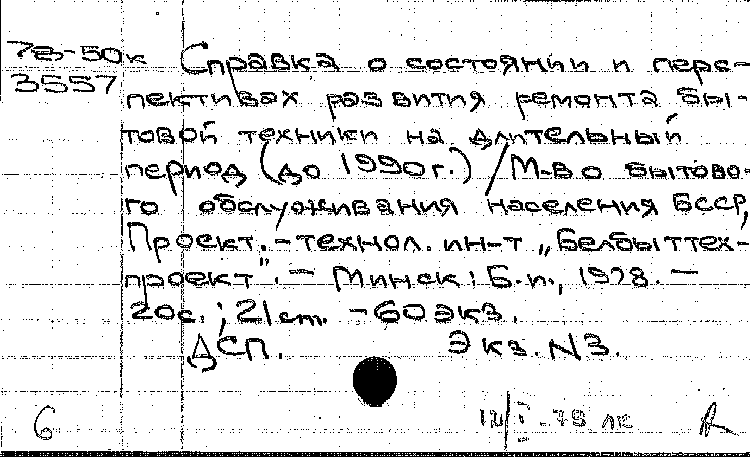 78-50к Справка о состоянии и перс-
3557 пективах развития ремонта бы-
товой техники на длительный
период (до 1990г.) / М-во бытово-
го обслуживания населения БССР,
Проект.-технол. ин-т „Белбыттех-
проект". - Минск: Б.и., 1978. -
20с.; 21 cm. - 60 экз.
ДСП. Экз. N3.
6 -78 лк